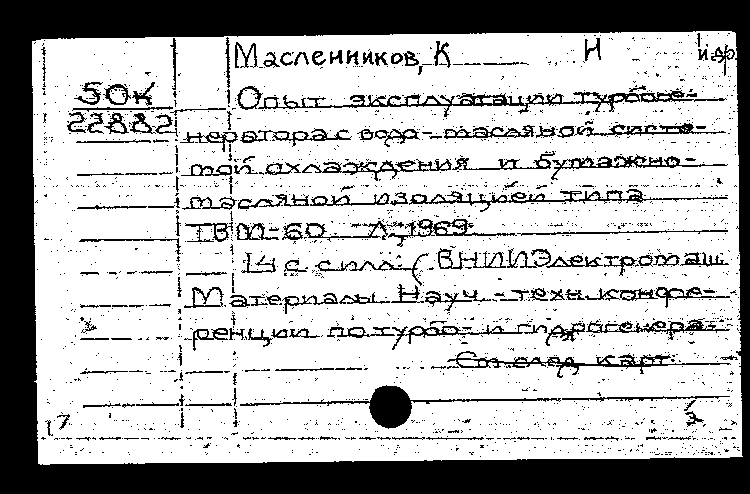 Масленников, К Н и др.
50К
22882
Опыт эксплуатации турбоге-
нератора с водо-масляной систе-
мой охлаждения и бумажно-
масляной изоляцией типа
ТВМ-60. Л., 1969.
14 с с илл. (ВНИИЭлектромаш
Материалы Науч.-техн. конфе-
ренции по турбо- и гидрогенера-
См. след. карт.
17